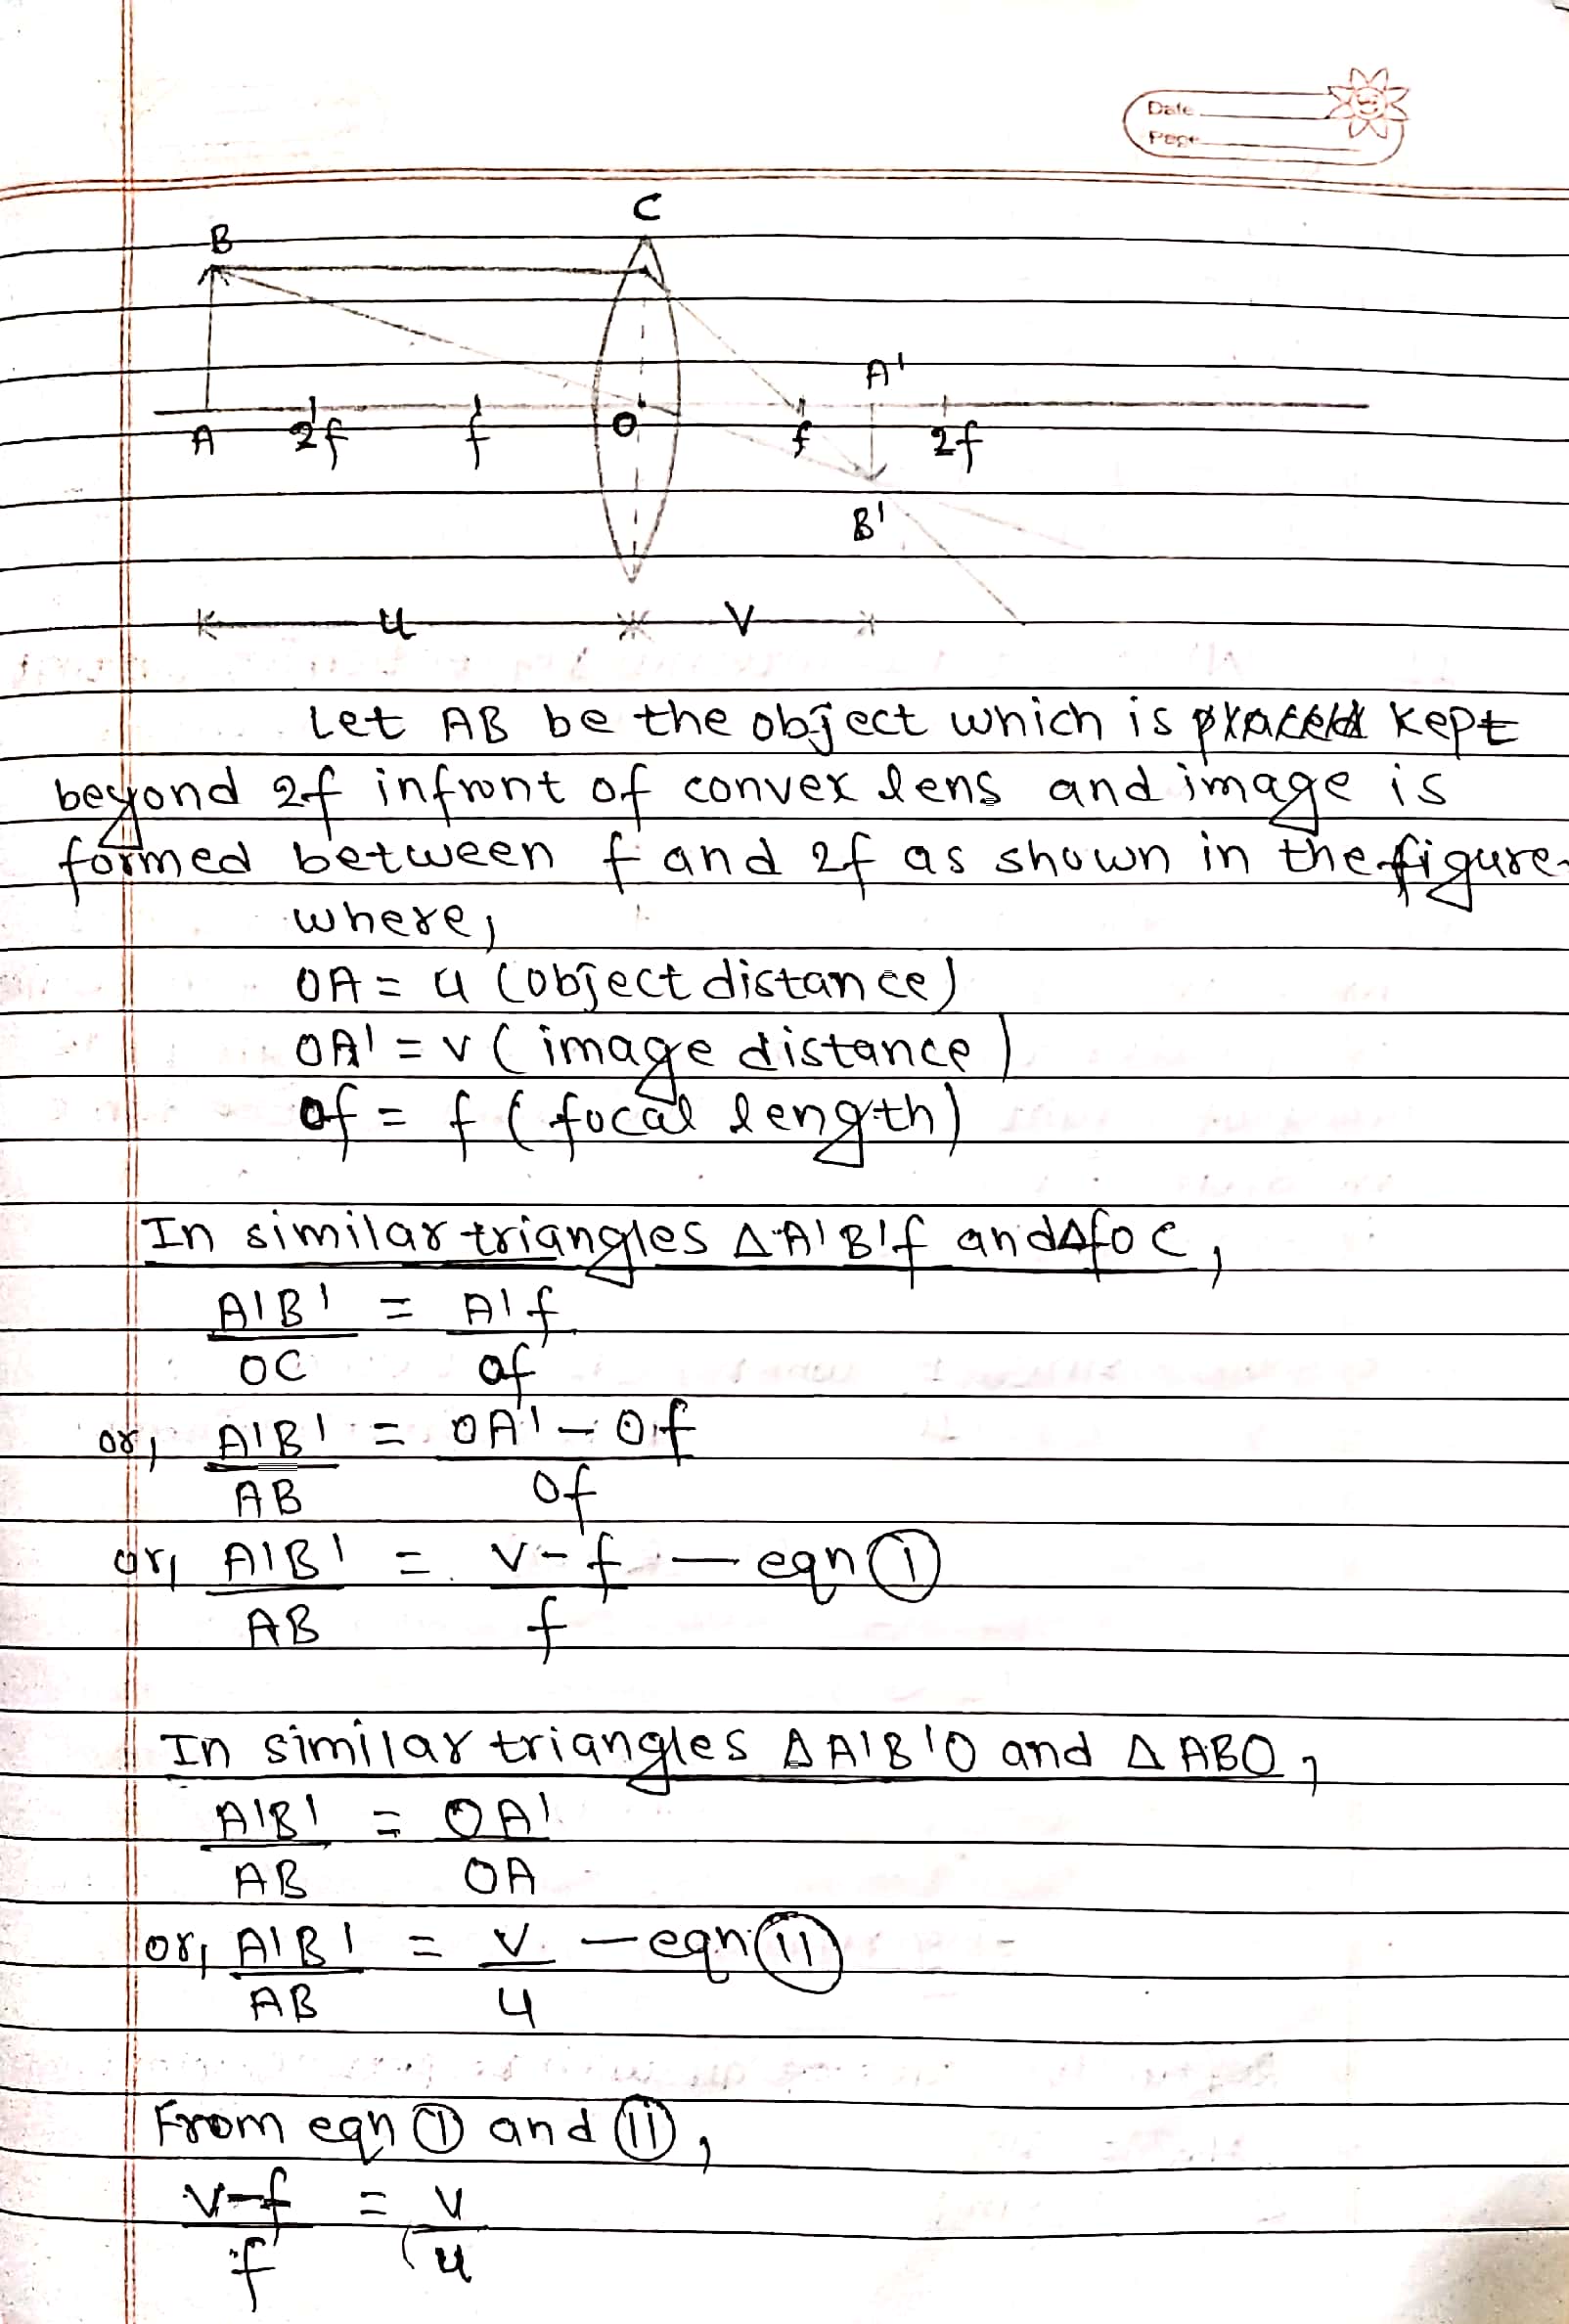 Date
Page
C
B
A'
A 2f f O f 2f
B'
u v
Let AB be the object which is placed kept
beyond 2f infront of convex lens and image is
formed between f and 2f as shown in the figure.
where,
OA = u (object distance)
OA' = v (image distance)
of = f (focal length)
In similar triangles ΔA'B'f and Δfoc,
A'B' = A'f
OC of
or, A'B' = OA' - Of
AB Of
or, A'B' = v-f — eqn (i)
AB f
In similar triangles ΔA'B'O and ΔABO,
A'B' = OA'
AB OA
or, A'B' = v — eqn (ii)
AB u
From eqn (i) and (ii),
v-f = v
f u